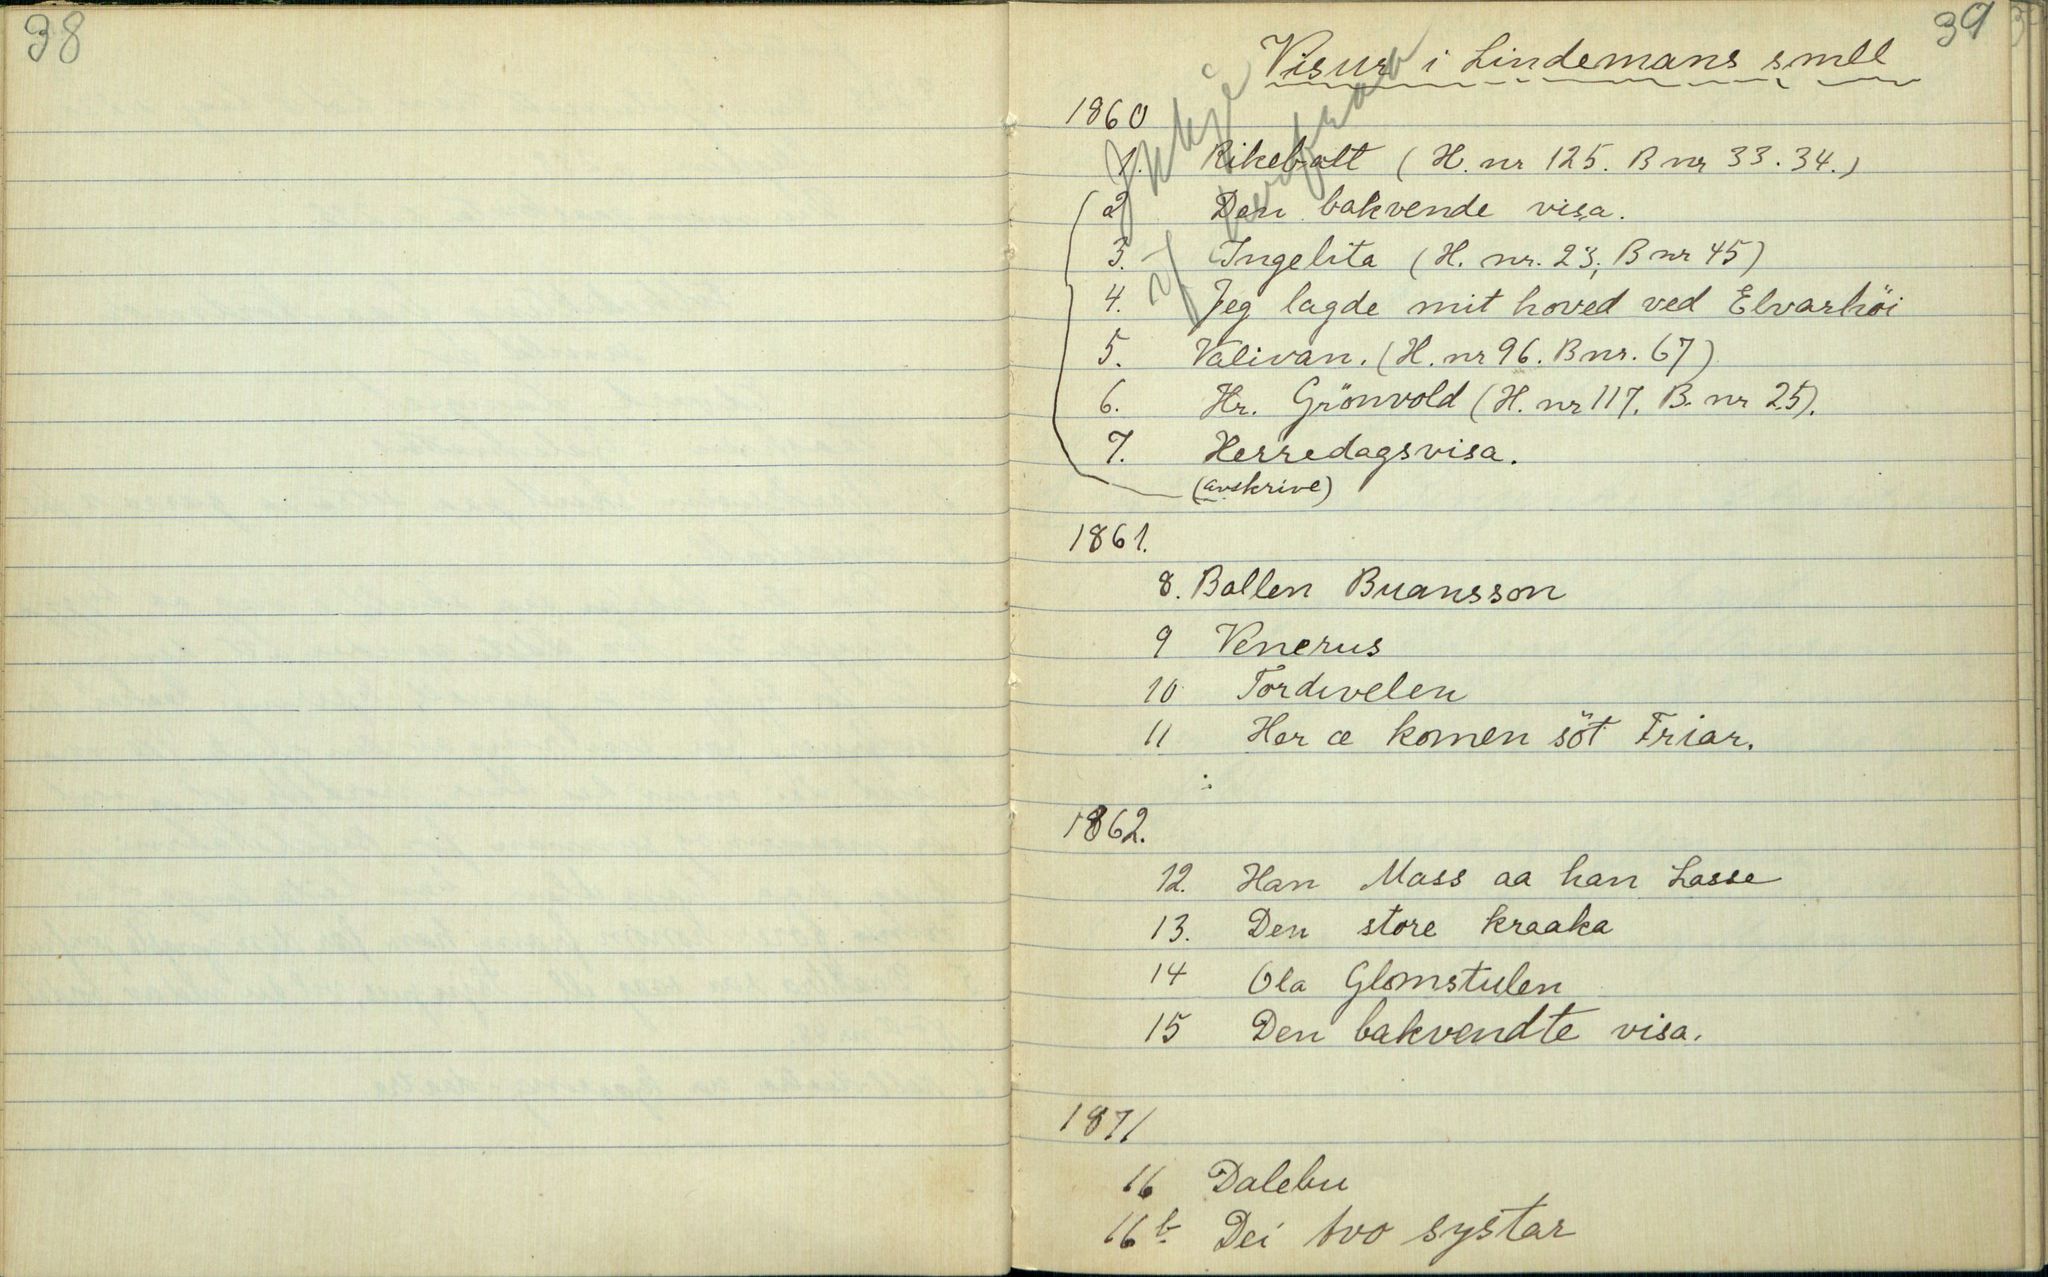 38
39
Visur i Lindemans smll
1860
Ikkje
1. Rikebalt (H. nr 125. B nr 33. 34.)
2 Den bakvende visa.
3. Ingelita (H. nr. 23; B nr 45)
4. Jeg lagde mit hoved ved Elvarhöi
5. Valivan. (H. nr 96. B nr. 67)
6. Hr. Grönvold (H. nr 117. B. nr 25).
7. Herredagsvisa.
(avskrive)
1861.
8. Ballen Buansson
9 Venerus
10 Tordivelen
11 Her æ komen söt Friar.
1862.
12. Han Mass aa han Lasse
13. Den store kraaka
14 Ola Glomstulen
15 Den bakvendte visa.
1871
16 Dalebu
16 b. Dei tvo systar